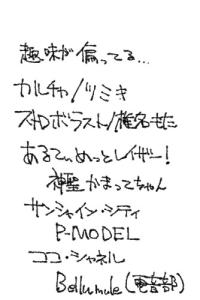 趣味が偏ってる...
カルチャ!/ツミキ
ストロボラスト/椎名もた
あるてぃめっとレイザー!
神聖かまってちゃん
サンシャイン・シティ
P-MODEL
ココ・シャネル
Bellmule(軽音部)